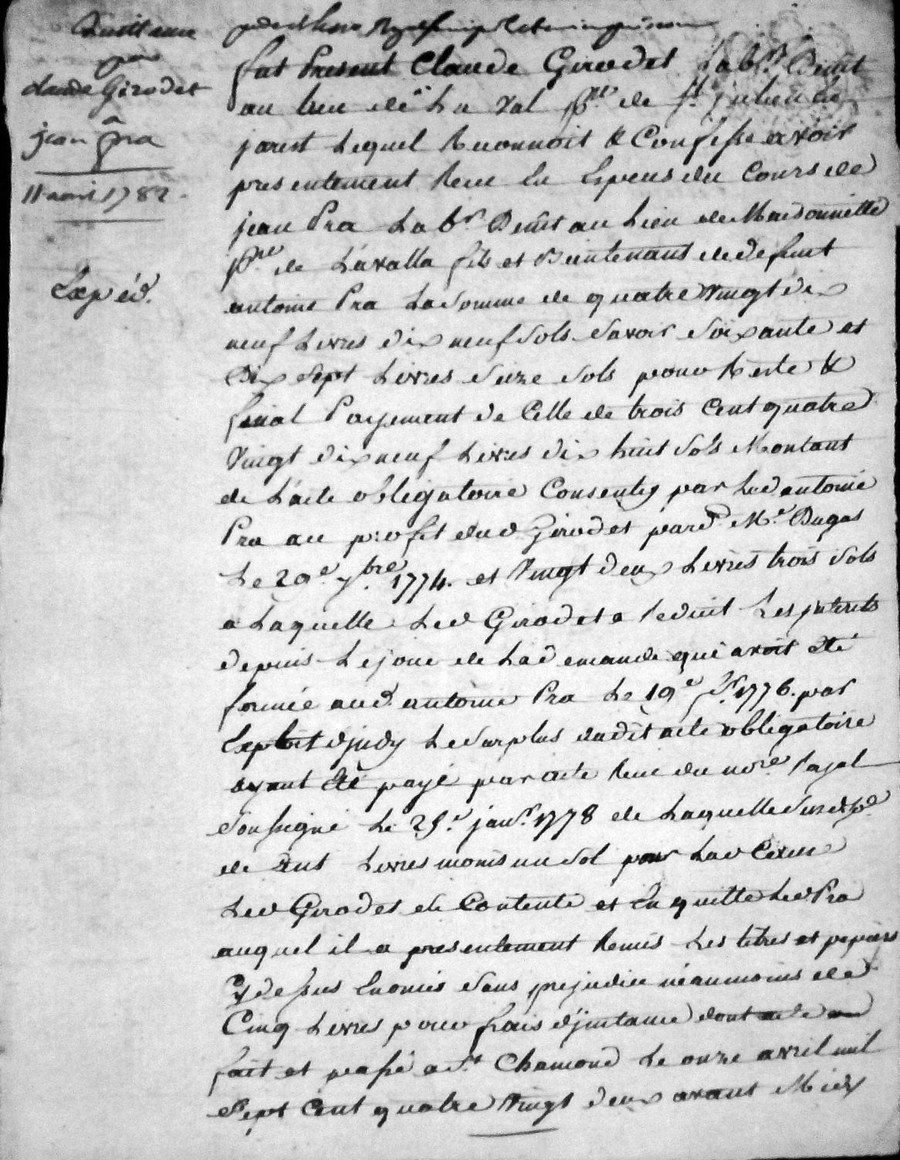 Quittance
par
claude Girodet
a
jean pra
11 avril 1782.
Expéd.
pardevant
fut Present Claude Girodet Lab.r Demt
au lieu de La Val p.sse de St julien en
jarest Lequel Reconnoit & Confesse avoir
presentement Receu En Especes du Cours de
jean Pra Lab.r Demt au Lieu de Maisonnette
p.sse de Lavalla fils et Buntenant de defunt
antoine Pra La somme de quatre Vingt dix
neuf Livres dix neuf sols savoir soixante et
Dix sept Livres seize sols pour Reste &
final Payement de Celle de trois Cent quatre
Vingt dix neuf Livres dix huit sols Montant
de L'acte obligatoire Consenty par Led antoine
Pra au profit dud Girodet pard. M.e Dugas
Le 29.e 7.bre 1774. et Vingt deux Livres trois sols
a Laquelle Led Girodet a Reduit Les jnterets
depuis Le jour de La demande qui avoit été
formée aud. antoine Pra Le 19.e 1776. par
Exploit djudy Le Surplus dudit acte obligatoire
ayant été payé par acte Receu du no.re
soussigné Le 25.e janv. 1778 de Laquelle Susd.
de Cent Livres moins un sol pour
Led Girodet Se Contente et En quitte Led Pra
auquel il a presentement Remis Les titres et papiers
Cy dessus Enoncés sans prejudice néanmoins de
Cinq Livres pour frais d'jnstance dont acte
fait et passé a St Chamond Le onze avril mil
Sept Cent quatre Vingt deux avant Midy